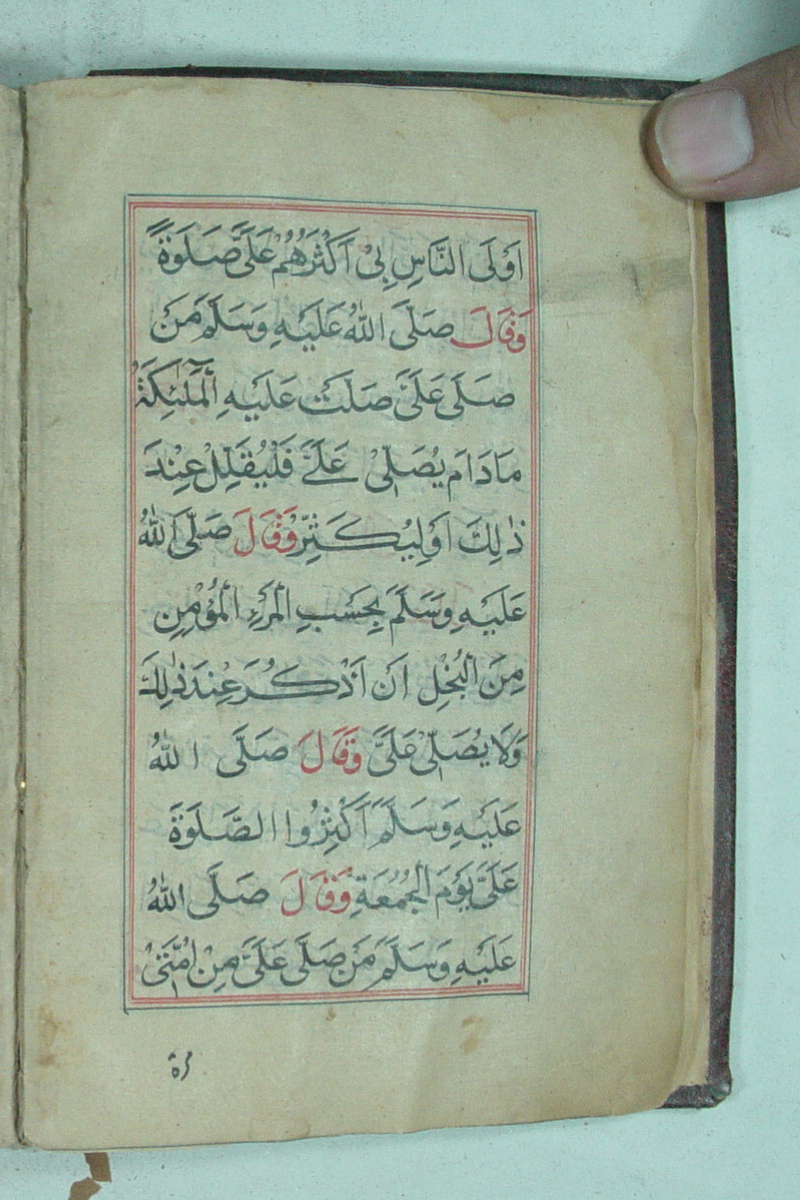 اَوْلَى النَّاسِ بِيْ اَكْثَرُهُمْ عَلَىَّ صَلٰوةً
وَقَالَ صَلَّى اللّٰهُ عَلَيْهِ وَسَلَّمَ مَنْ
صَلَّى عَلَىَّ صَلَّتْ عَلَيْهِ الْمَلٰٓئِكَةُ
مَادَامَ يُصَلِّىْ عَلَىَّ فَلْيُقَلِّلْ عِنْدَ
ذٰلِكَ اَوْلِيُكَثِّرْ وَقَالَ صَلَّى اللّٰهُ
عَلَيْهِ وَسَلَّمَ بِحَسْبِ الْمَرْءِ الْمُؤْمِنِ
مِنَ الْبُخْلِ اَنْ اُذْكَرَ عِنْدَ ذٰلِكَ
وَلَا يُصَلِّىْ عَلَىَّ وَقَالَ صَلَّى اللّٰهُ
عَلَيْهِ وَسَلَّمَ اَكْثِرُوا الصَّلٰوةَ
عَلَىَّ يَوْمَ الْجُمُعَةِ وَقَالَ صَلَّى اللّٰهُ
عَلَيْهِ وَسَلَّمَ مَنْ صَلَّى عَلَىَّ مِنْ اُمَّتِىْ
مرة